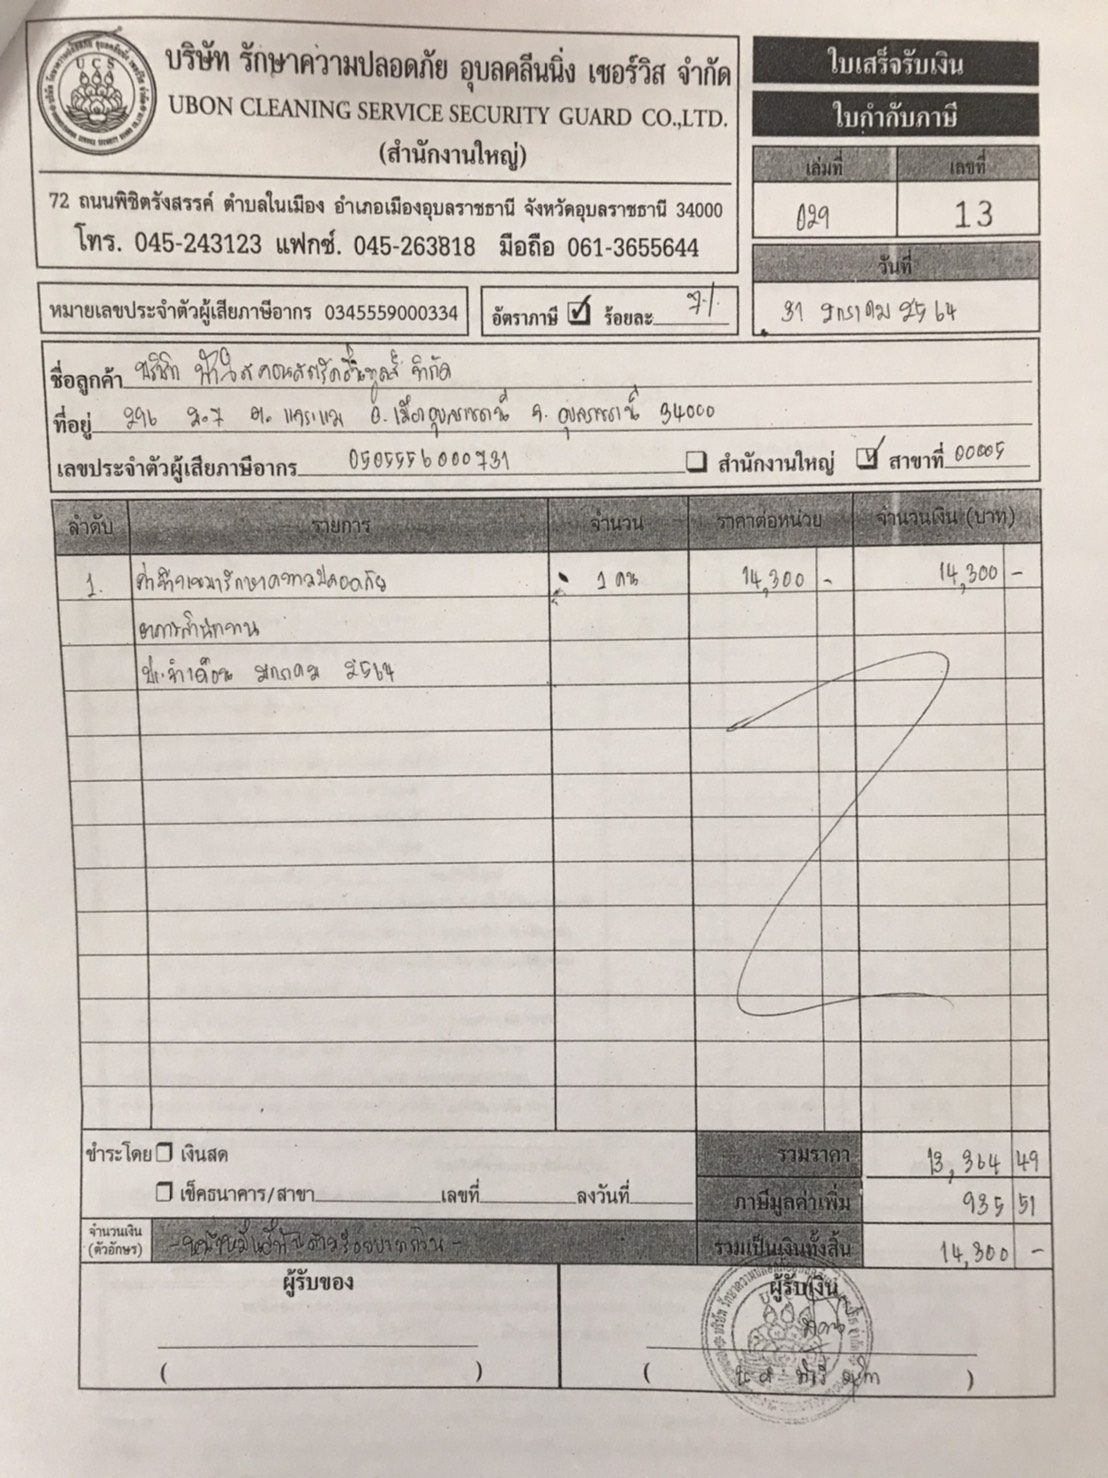 บริษัท รักษาความปลอดภัย อุบลคลีนนิ่ง เซอร์วิส จำกัด
UBON CLEANING SERVICE SECURITY GUARD CO.,LTD.
(สำนักงานใหญ่)
72 ถนนพิชิตรังสรรค์ ตำบลในเมือง อำเภอเมืองอุบลราชธานี จังหวัดอุบลราชธานี 34000
โทร. 045-243123 แฟกซ์. 045-263818 มือถือ 061-3655644
ใบเสร็จรับเงิน
ใบกำกับภาษี
เล่มที่ เลขที่
029 13
วันที่
31 มกราคม 2564
หมายเลขประจำตัวผู้เสียภาษีอากร 0345559000334
อัตราภาษี ร้อยละ 7%
ชื่อลูกค้า บริษัท จำกัด
ที่อยู่ 296 ม.7 ต. แจระแม อ. เมืองอุบลราชธานี จ. อุบลราชธานี 34000
เลขประจำตัวผู้เสียภาษีอากร 0505556000731 สำนักงานใหญ่ สาขาที่ 00005
ลำดับ รายการ จำนวน ราคาต่อหน่วย จำนวนเงิน (บาท)
1. ค่าจ้างเหมารักษาความปลอดภัย 1 คน 14,300 - 14,300 -
อาคารสำนักงาน
ประจำเดือน มกราคม 2564
ชำระโดย เงินสด
รวมราคา 13,364 49
เช็คธนาคาร/สาขา เลขที่ ลงวันที่
ภาษีมูลค่าเพิ่ม 935 51
จำนวนเงิน (ตัวอักษร) -หนึ่งหมื่นสี่พันสามร้อยบาทถ้วน-
รวมเป็นเงินทั้งสิ้น 14,300 -
ผู้รับของ ผู้รับเงิน
( ) ( )